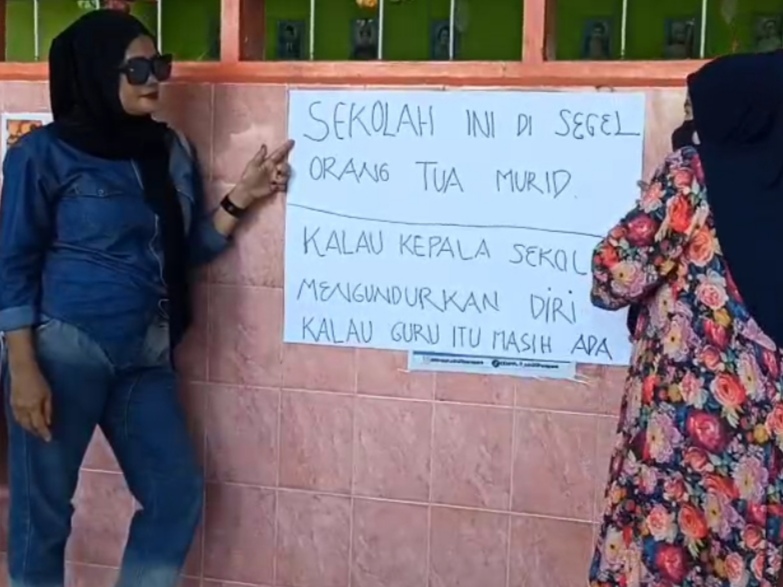 SEKOLAH INI DI SEGEL
ORANG TUA MURID.
KALAU KEPALA SEKOL
MENGUNDURKAN DIRI
KALAU GURU ITU MASIH ADA